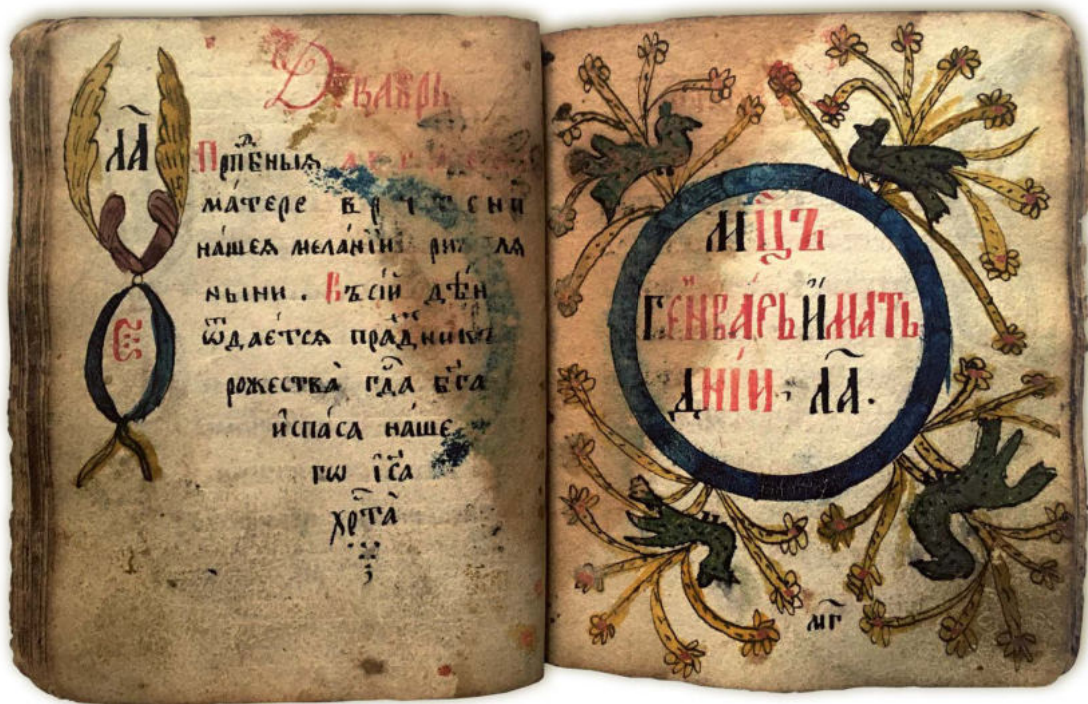 Декаврь
ла҃
Прпⷣбныя
матере
нашея мелании римляныни . Въсий дн҃ь
е҃
ѿдается праⷥдникъ
рожества гдⷭ҇а бг҃а
испаса наше
гѡ іс҃а
хрⷭ҇та
мцⷭ҇ъ
генварь имать
днїи · ла҃ .
мг҃